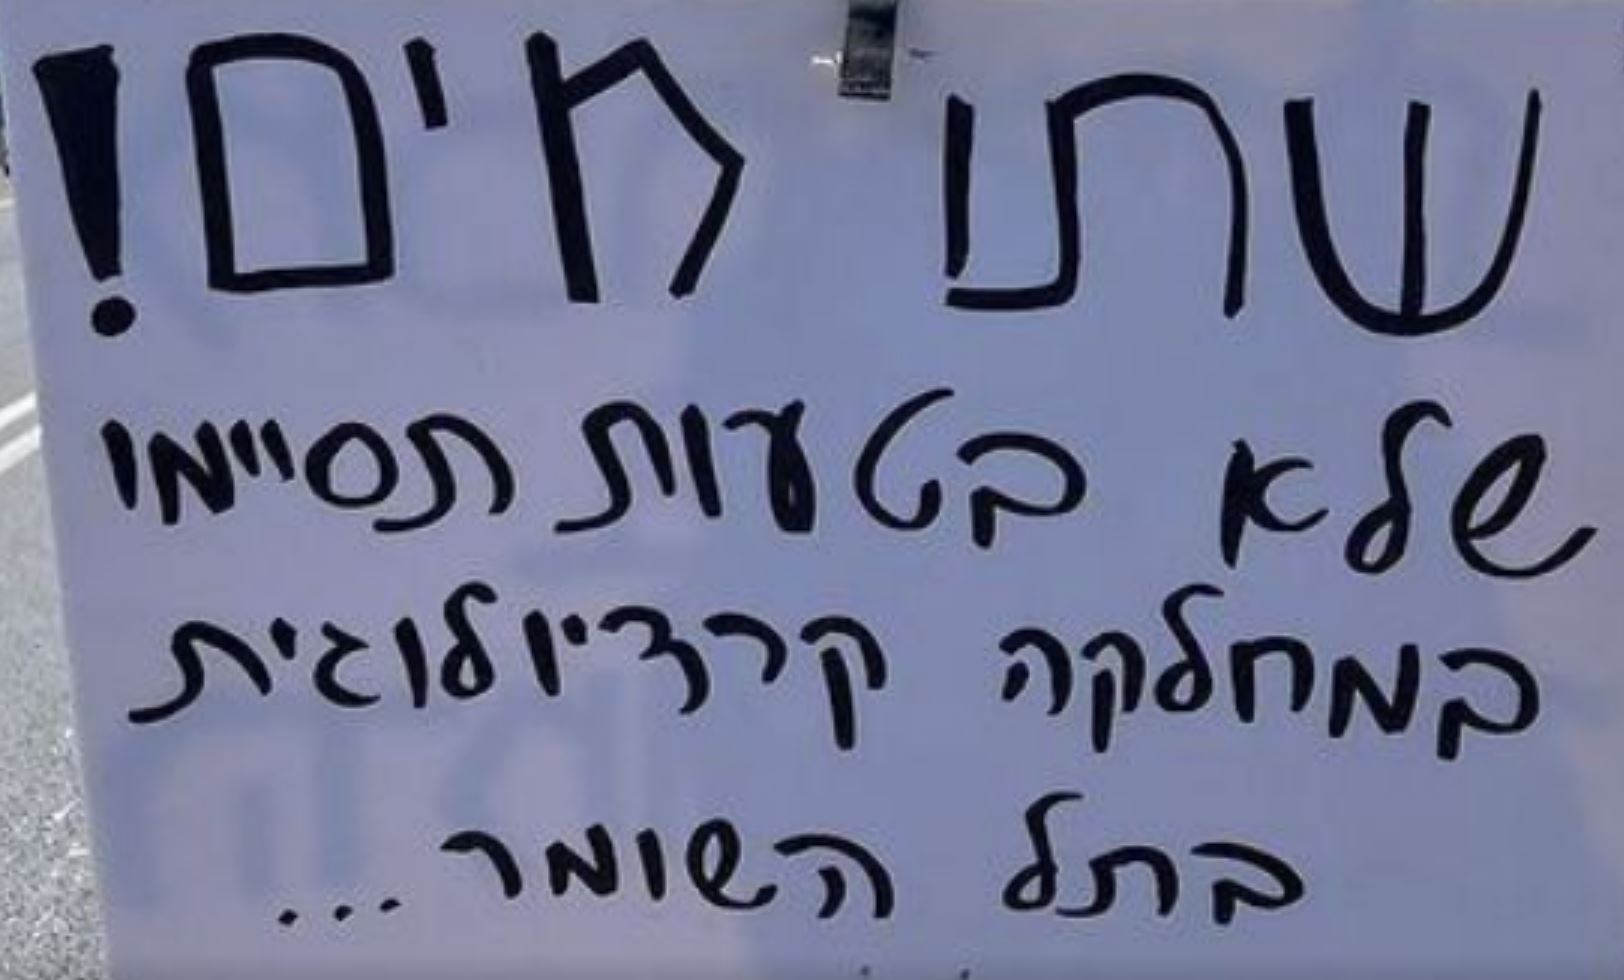 שתו מים!
שלא בטעות תסיימו
במחלקה קרדיולוגית
בתל השומר...